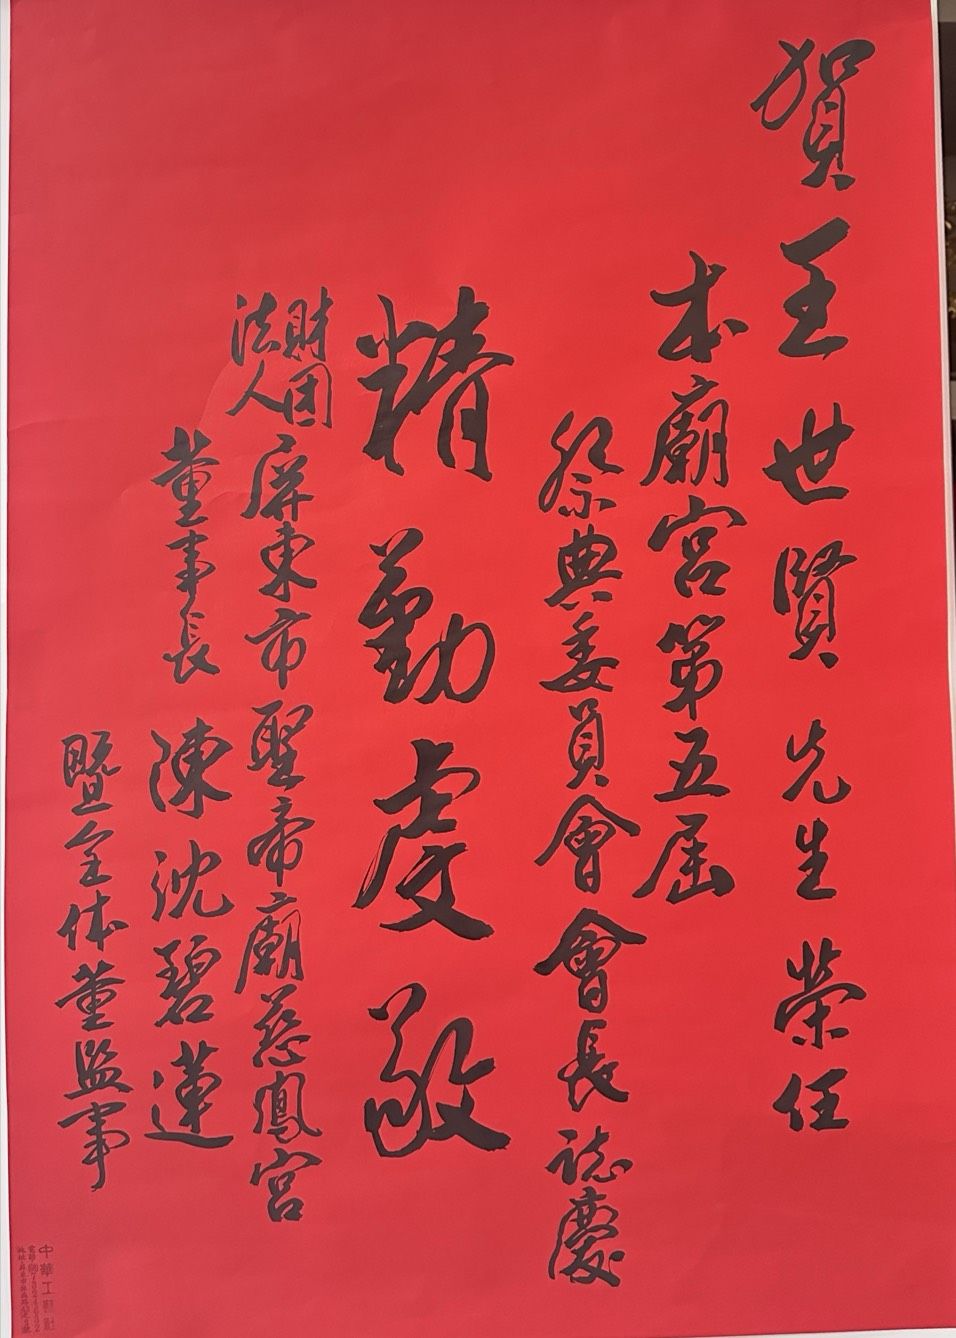 賀王世賢先生榮任
本廟宮第五屆
祭典委員會會長誌慶
精勤虔敬
財團法人屏東市聖帝廟慈鳳宮
董事長陳沈碧蓮
暨全体董監事
中華工藝社